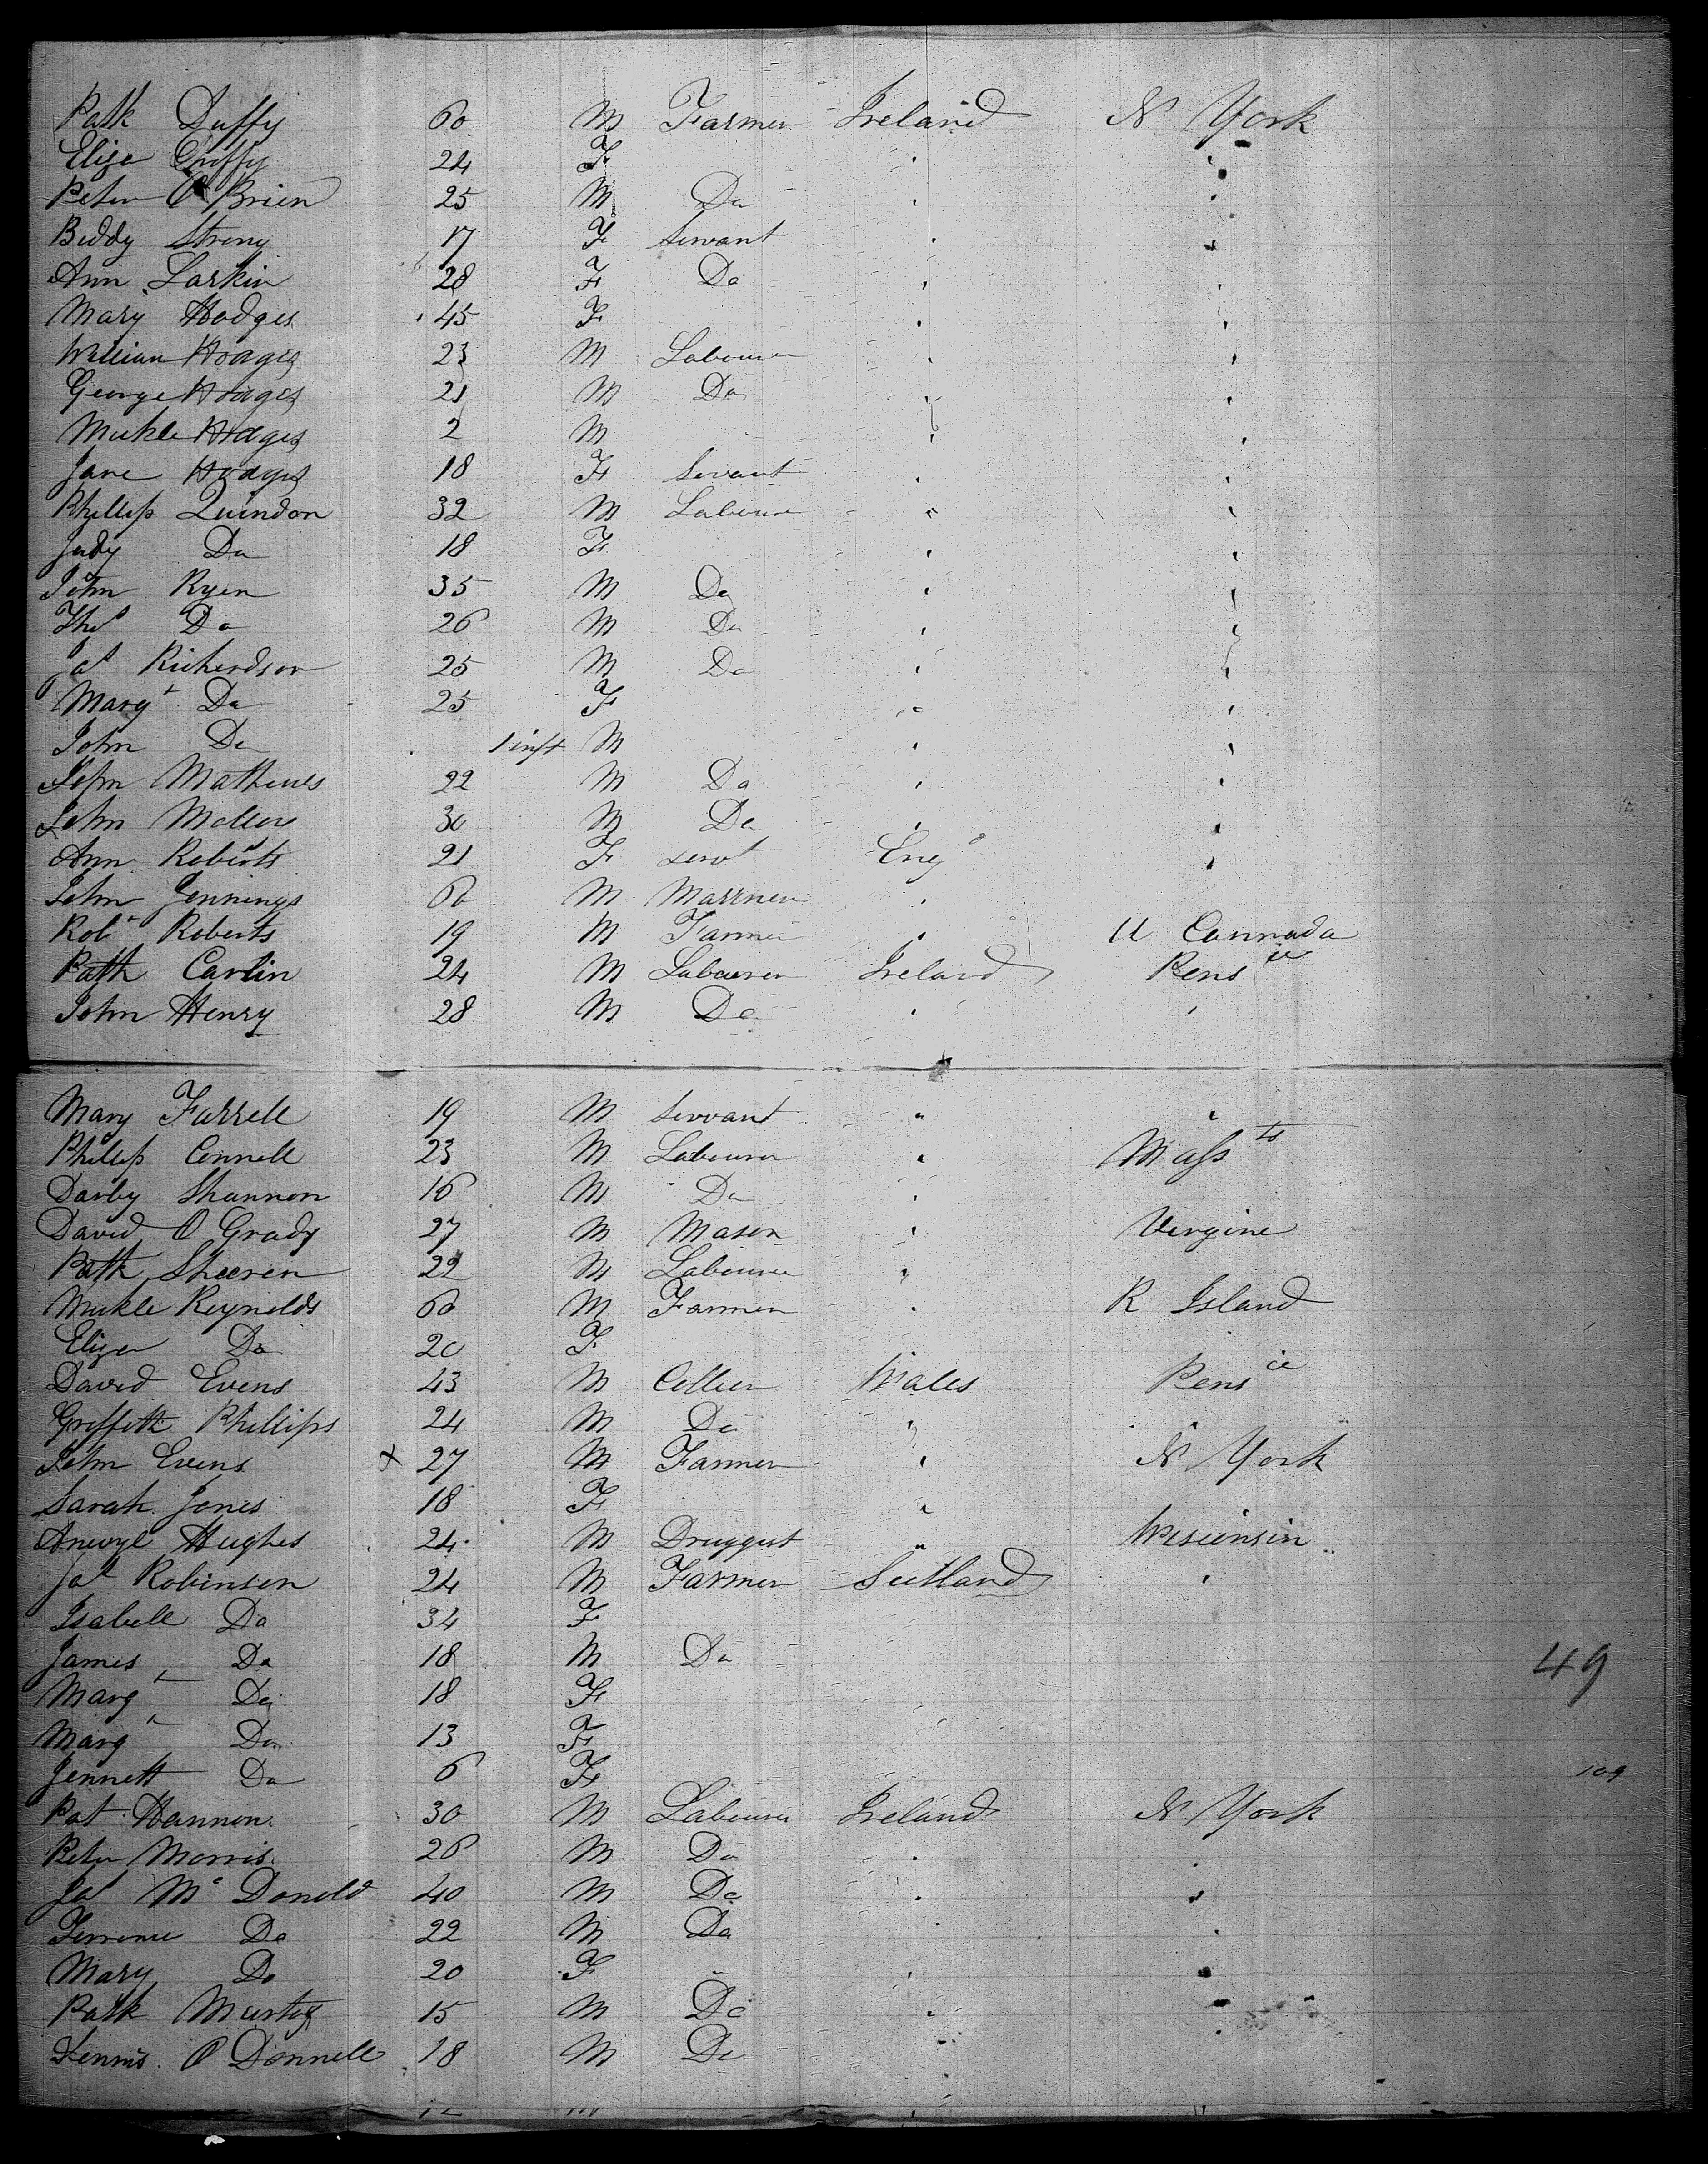 Patk Duffy 60 M Farmer Ireland N York
Eliza Duffy 24 F " "
Peter O Brien 25 M Do " "
Biddy Strong 17 F Servant " "
Ann Larkin 28 F Do " "
Mary Hodges 45 F " "
William Hodges 23 M Labourer " "
George Hodges 21 M Do " "
Mickle Hodges 2 M " "
Jane Hodges 18 F Servant " "
Phillip Quindon 32 M Labourer " "
Judy Do 18 F " "
John Ryen 35 M Do " "
Thos Do 26 M Do " "
Jas Richerdson 25 M Do " "
Margt Do 25 F " "
John Do 1 inft M " "
John Mathews 22 M Do " "
John 30 M Do " "
Ann Roberts 21 F servt Engd "
John Jennings 60 M Marrner "
Robt Roberts 19 M Farmer " U Cannada
Patk Carlin 24 M Labourer Ireland Pensie
John Henry 28 M Do " "
Mary Farrell 19 M Servant " "
Phillip Connell 23 M Labourer " Massts
Darby Shannon 16 M Do "
David O Grady 27 M Mason " Vergine
Patk Sheeren 22 M Labourer "
Mickle Reynolds 60 M Farmer " R Island
Eliza Do 20 F
David Evens 43 M Collier Wales Pensie
Griffith Phillips 24 M Do " "
John Evens x 27 M Farmer " N York
Sarah Jones 18 F "
Anwyl Hughes 24 M Druggist " Wisconsin
Jas Robinson 24 M Farmer Scotland "
Isabell Do 34 F
James Do 18 M Do
49
Margt Do 18 F
Margt Do 13 F
Jennett Do 6 F
109
Pat Hannon 30 M Labourer Ireland N York
Peter Morris 26 M Do " "
Jas Mc Donold 40 M Do " "
Terrence Do 22 M Do " "
Mary Do 20 F " "
Patk 15 M Do " "
Dennis O Donnell 18 M Do " "